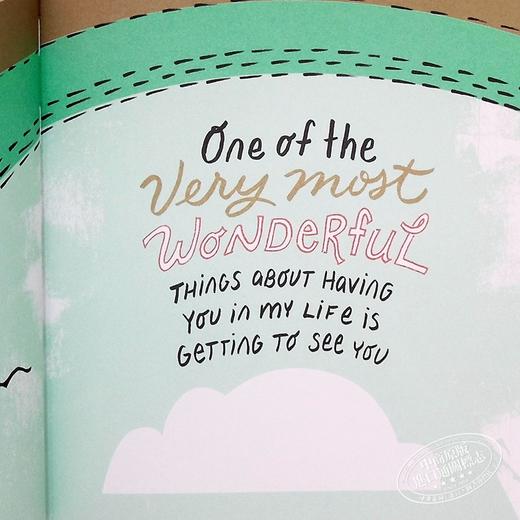 One of the
Very most
WONDERFUL
THINGS ABOUT HAVING
YOU IN MY LIFE IS
GETTING TO SEE YOU